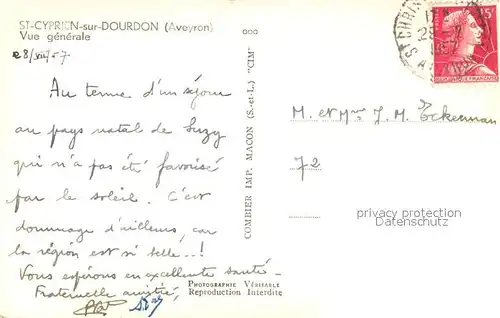 ST-CYPRIEN-sur-DOURDON (Aveyron)
Vue générale
28/VII/57
Au terme d'un séjour
au pays natal de Suzy
qui n'a pas été favorisé
par le soleil. C'est
dommage d'ailleurs, car
la région est si belle..!
Vous espérons en excellente santé.
Fraternelle amitié,
COMBIER IMP. MACON (S.-et-L.) "CIM"
PHOTOGRAPHIE VÉRITABLE
Reproduction Interdite
15F
1957
M. et Mme J. M. Eckerman
72
privacy protection
Datenschutz